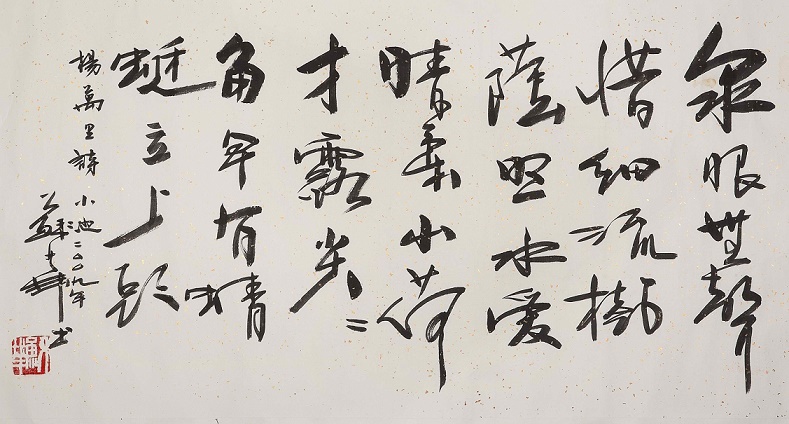 泉眼無聲
惜細流樹
蔭照水愛
晴柔小荷
才露尖〻
角早有蜻
蜓立上頭
楊萬里詩 小池 二〇〇九年
蘇